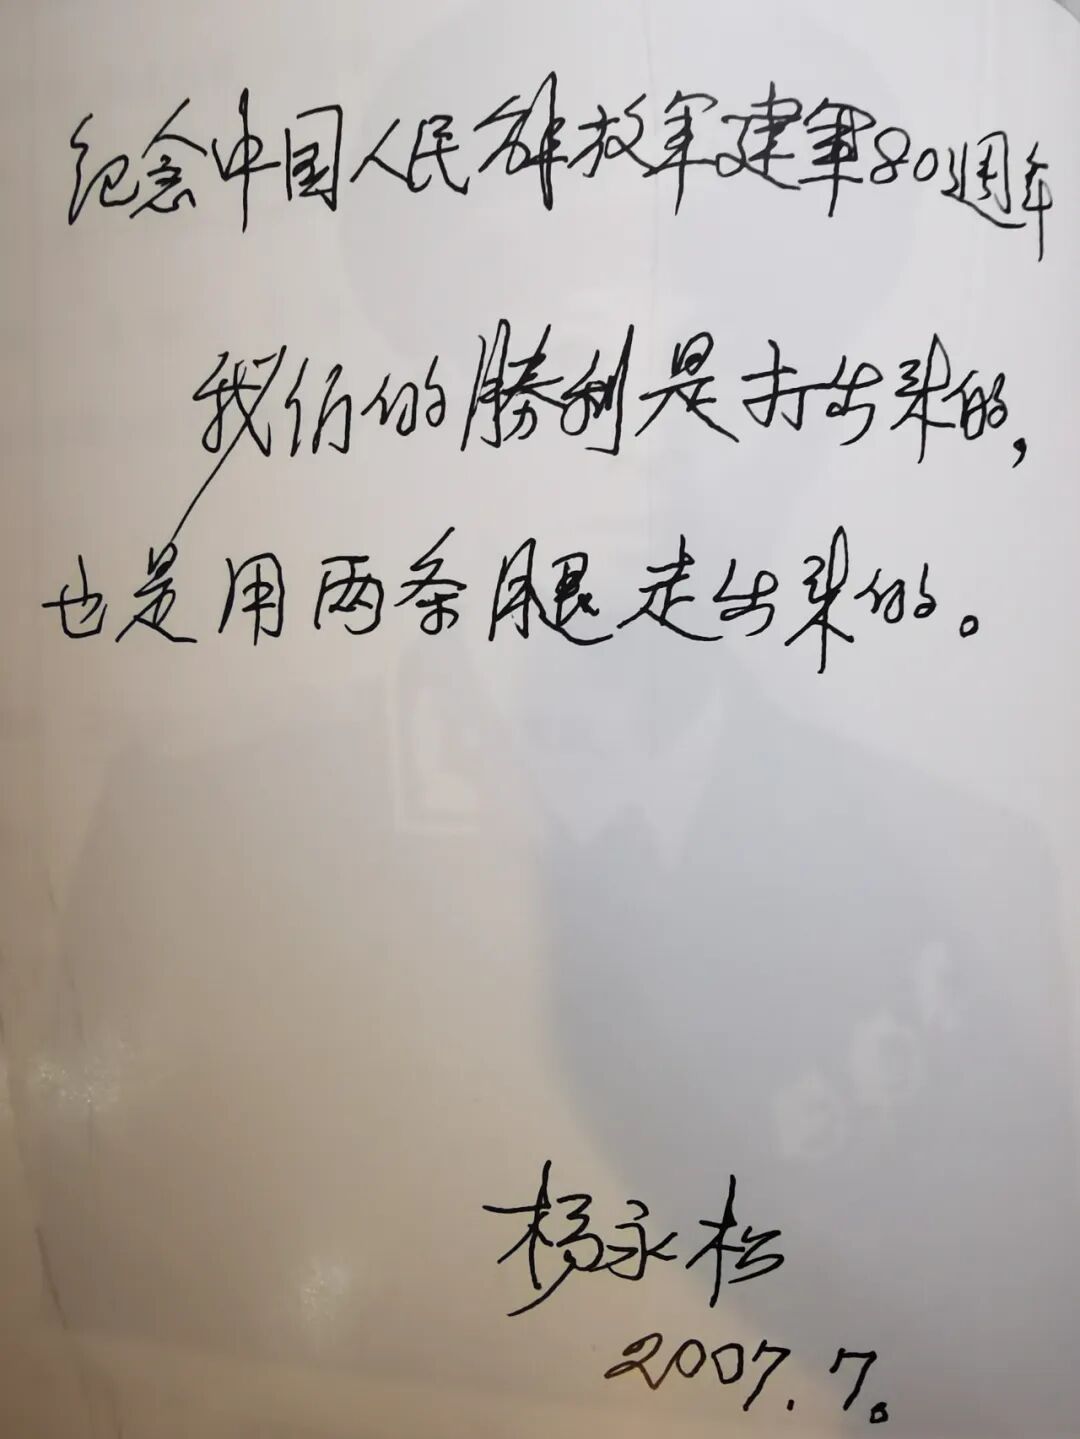 纪念中国人民解放军建军80週年
我们的勝利是打出来的，
也是用两条腿走出来的。
杨永松
2007.7.